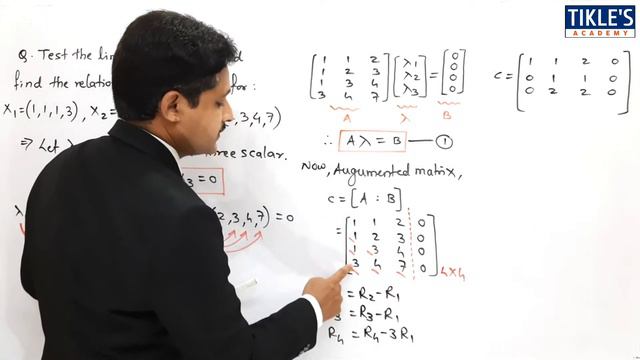 TIKLE'S
ACADEMY
Q. Test the
find the relatio for:
X1=(1,1,1,3), X2= 2,3,4,7)
⇒ Let three scalar.
3 = 0
(2,3,4,7) = 0
[1 1 2] [λ1] = [0]
[1 2 3] [λ2] [0]
[1 3 4] [λ3] [0]
[3 4 7] [0]
A λ B
∴ Aλ = B — ①
Now, Augumented matrix,
C = [A : B]
= [1 1 2 0]
[1 2 3 0]
[1 3 4 0]
[3 4 7 0] 4×4
= R2 - R1
= R3 - R1
R4 = R4 - 3R1
C = [1 1 2 0]
[0 1 1 0]
[0 2 2 0]